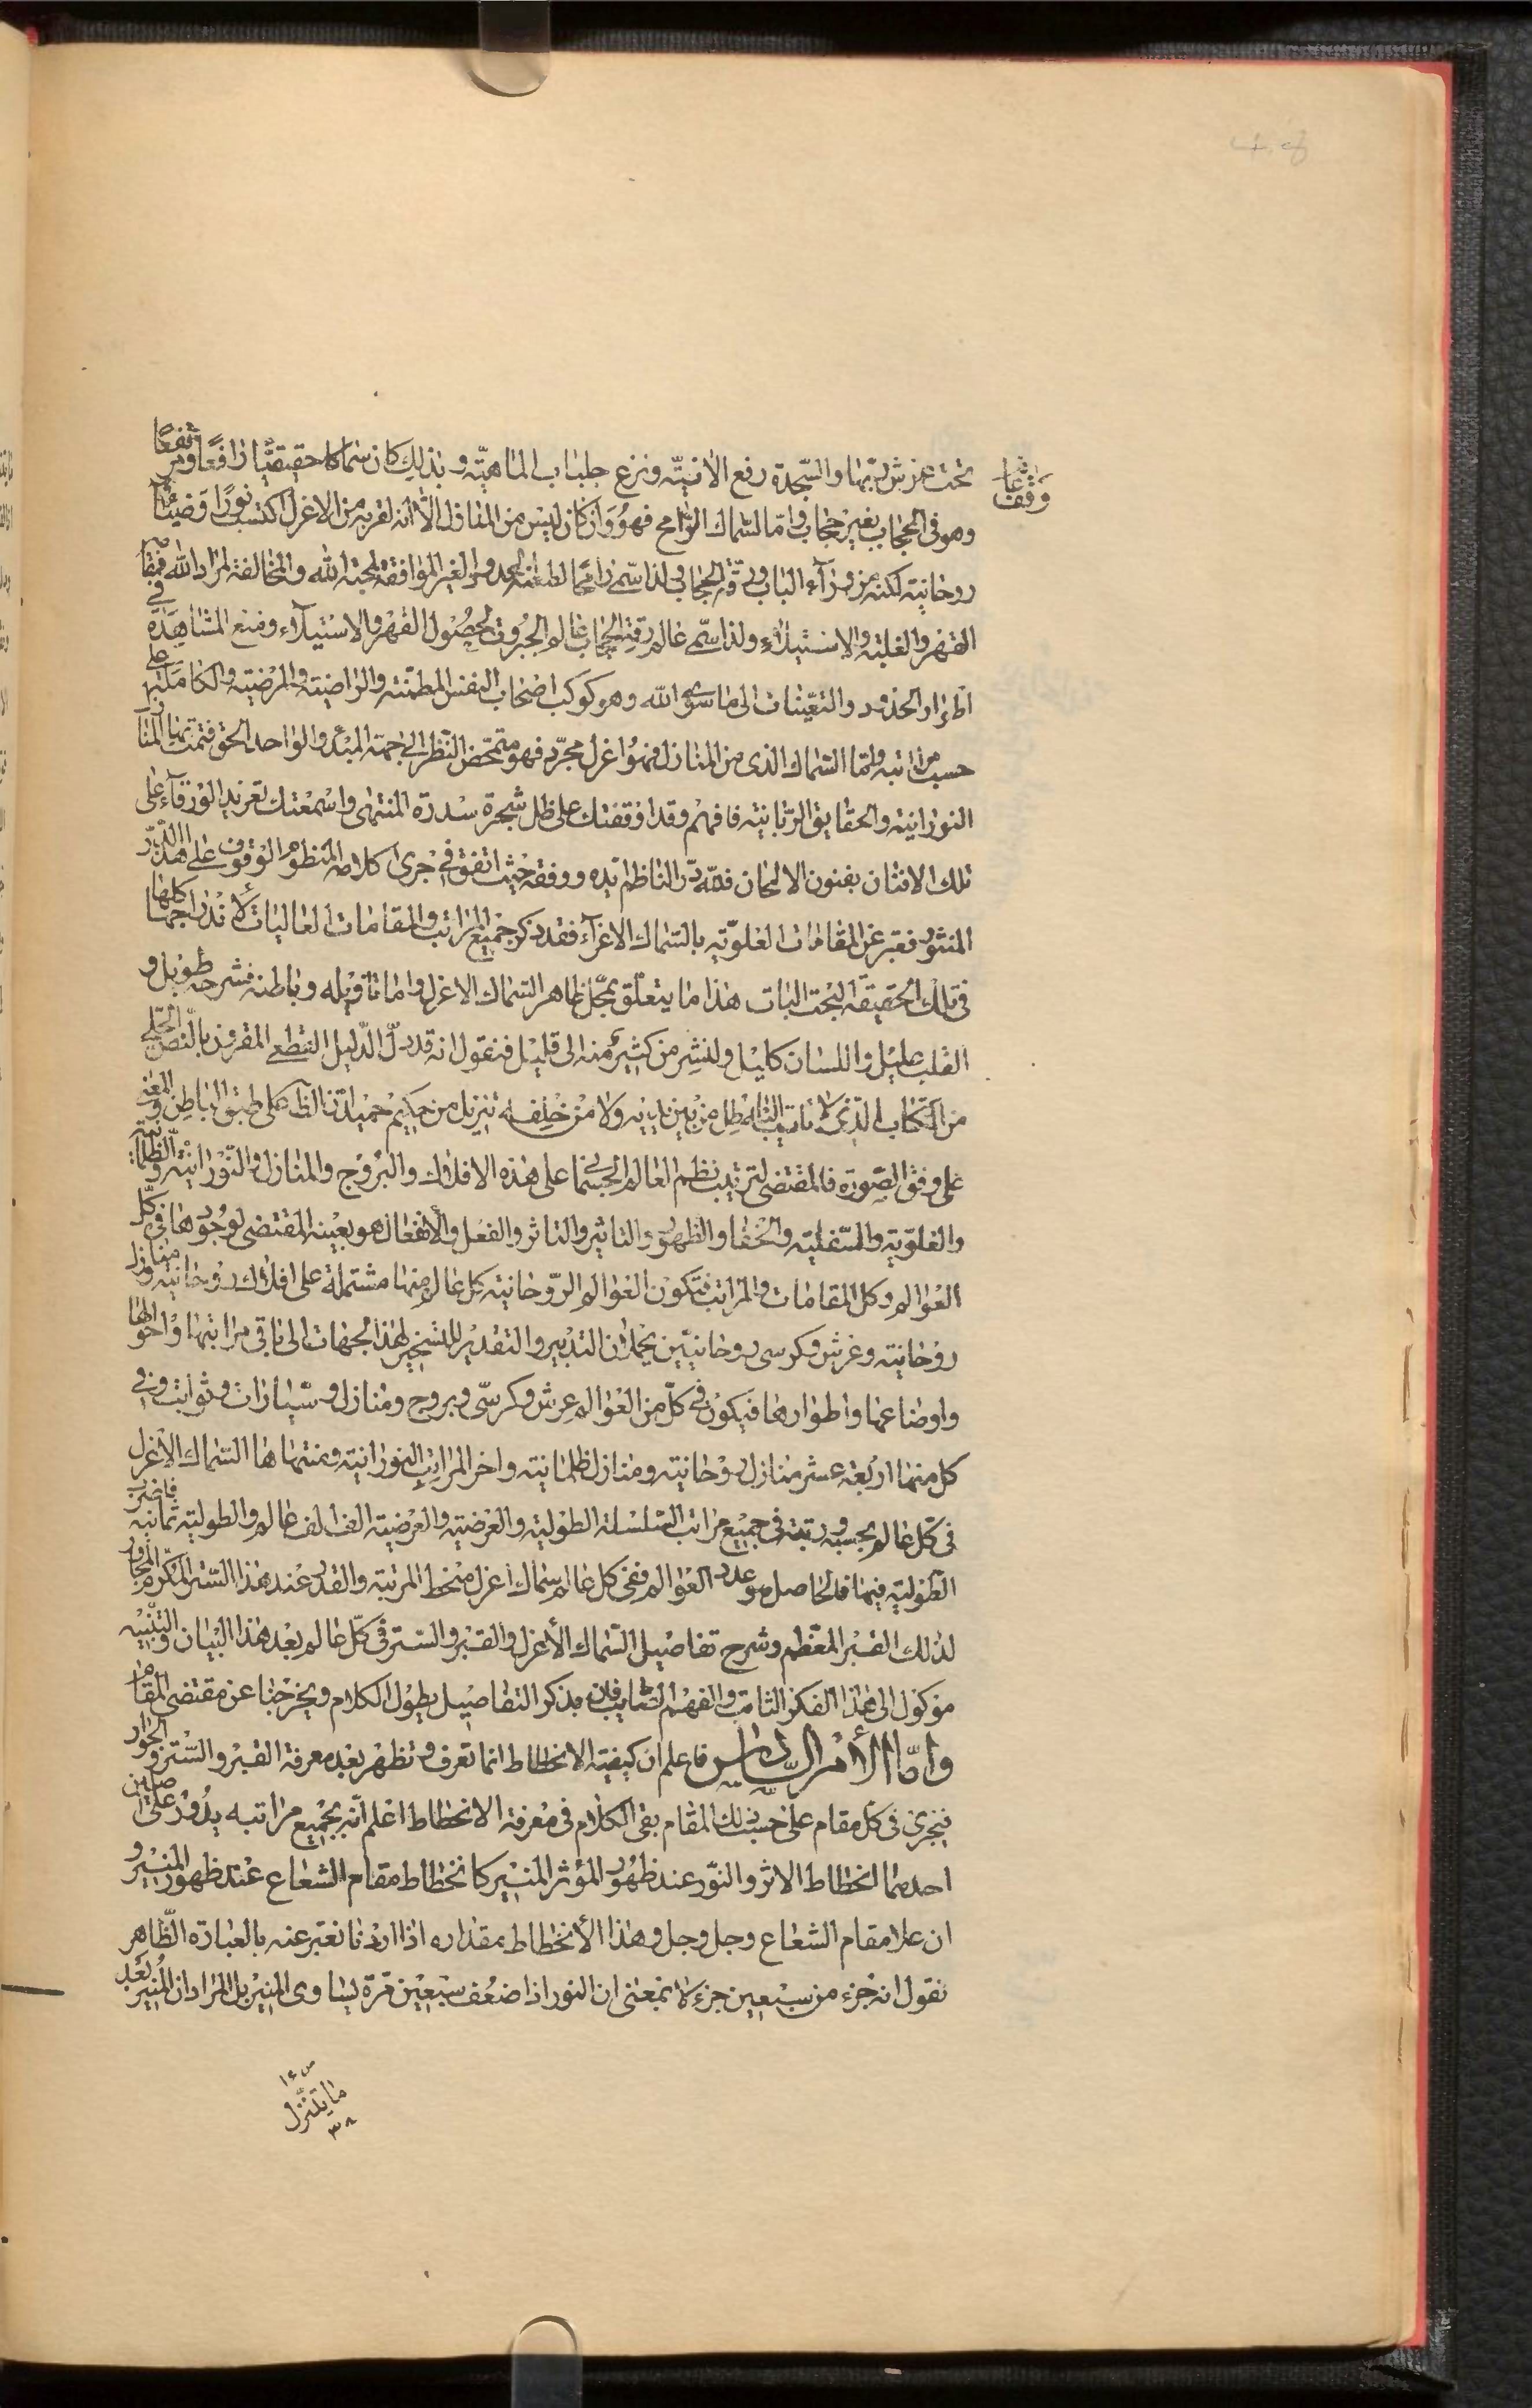 تحت عرش ربها والسجدة رفع الانيّة ونزع جلباب الماهيّة وبذلك كان سماكا حقيقيًّا رافعًا ومرتفعًا
واقفا
وهو في الحجاب بغير حجاب وامّا السماك الرامح فهو وان كان ليس من المنازل الّا انه لقربه من الاعزل اكتسب نورًا وضياءً
روحانية لكنه من ورآء الباب ورقة الحجاب ولذا سمّى رامحًا لطعنه الحدود الغير الموافقة لمحبة الله والمخالفة لمراد الله فمقامه
القهر والغلبة والاستيلآء ولذا سمّى عالم رقة الحجاب عالم الجبروت لحصول القهر والاستيلآء ومنع المشاهدة في
اطوار الحدود والتعيّنات الى ما سوى الله وهو كوكب اصحاب النفس المطمئنة والراضية والمرضية والكاملة على
حسب مراتبه وامّا السماك الذى من المنازل فهو اعزل مجرّد فهو متمحّض النظر الى جهة المبدء والواحد الحق فتمت بها المنازل
النورانية والحقايق الربّانية فافهم وقد اوقفتك على ظل شجرة سدرة المنتهى واسمعتك تغريد الورقآء على
تلك الافنان بفنون الالحان فلله درّ الناظم ايّده ووفقه حيث اتفق في جرى كلامه المنظوم الوقوف على هذا الدّر
المنثور فعبّر عن المقامات العلويّة بالسماك الاعزل فقد ذكر جميع المراتب والمقامات العاليات لاندراجها كلها
في تلك الحقيقة البحت البات هذا ما يتعلّق بمجمل ظاهر السماك الاعزل واما تاويله وباطنه فشرحه طويل و
القلب عليل واللسان كليل ولنشر من كثير منه الى قليل فنقول انه قد دلّ الدّليل القطعى المقرون بالنّص الجلى
من الكتاب الّذي لا ياتيه الباطل من بين يديه ولا من خلفه تنزيل من حكيم حميد انّ الظاهر على طبق الباطن والمعنى
على وفق الصّورة فالمقتضى لترتيب نظم العالم الجسمانى على هذه الافلاك والبروج والمنازل والنورانيّة والظلمانية
والعلويّة والسّفليّة والخفاء والظهور والتاثير والتاثر والفعل والانفعال هو بعينه المقتضى لوجودها في كلّ
العوالم وكل المقامات والمراتب فتكون العوالم الرّوحانية كل عالم منها مشتملة على افلاك روحانية ومنازل
روحانية وعرش وكرسى روحانيّين يحملان التدبير والتقدير للتسخير لهذا الجهات الى باقي مراتبها واحوالها
واوضاعها واطوارها فيكون في كلّ من العوالم عرش وكرسّى وبروج ومنازل وسيّارات وثوابت وفي
كل منها اربعة عشر منازل روحانية ومنازل ظلمانية واخر المراتب النورانية ومنتهاها السماك الاعزل
في كل عالم بحسبه ورتبته في جميع مراتب السّلسلة الطولية والعرضية والعرضية الف الف عالم والطولية ثمانية فاضرب
الطّولية فيها فالحاصل هو عدد العوالم ففى كل عالم سماك اعزل منحط المرتبة والقدر عند هذا السّتر المكرّم المجاور
لذلك القبر المعظم وشرح تفاصيل السّماك الأعزل والقبر والستر في كلّ عالم بعد هذا البيان والتّنبيه
موكول الى هذا الفكر الثاقب والفهم الصّايب فان بذكر التفاصيل يطول الكلام ويخرجنا عن مقتضى المقام
وامّا الأمر السّادس فاعلم ان كيفية الانحطاط انما تعرف وتظهر بعد معرفة القبر والسّتر والجوار
فيجرى في كل مقام على حسب ذلك المقام بقى الكلام في معرفة الانحطاط اعلم انّه بجميع مراتبه يدور على اصلين
احدهما انحطاط الاثر والنّور عند ظهور المؤثر المنير كانحطاط مقام الشعاع عند ظهور المنير و
ان علا مقام الشعاع وجل وجل وهذا الأنحطاط بمقداره اذا اردنا نعبّر عنه بالعبارة الظّاهر
نقول انه جزء من سبعين جزء لا بمعنى ان النور اذا ضعف سبعين مرّة يساوى المنير بل المراد ان المنير بعد
ص ١٤
ما يتنزّل
٣٨